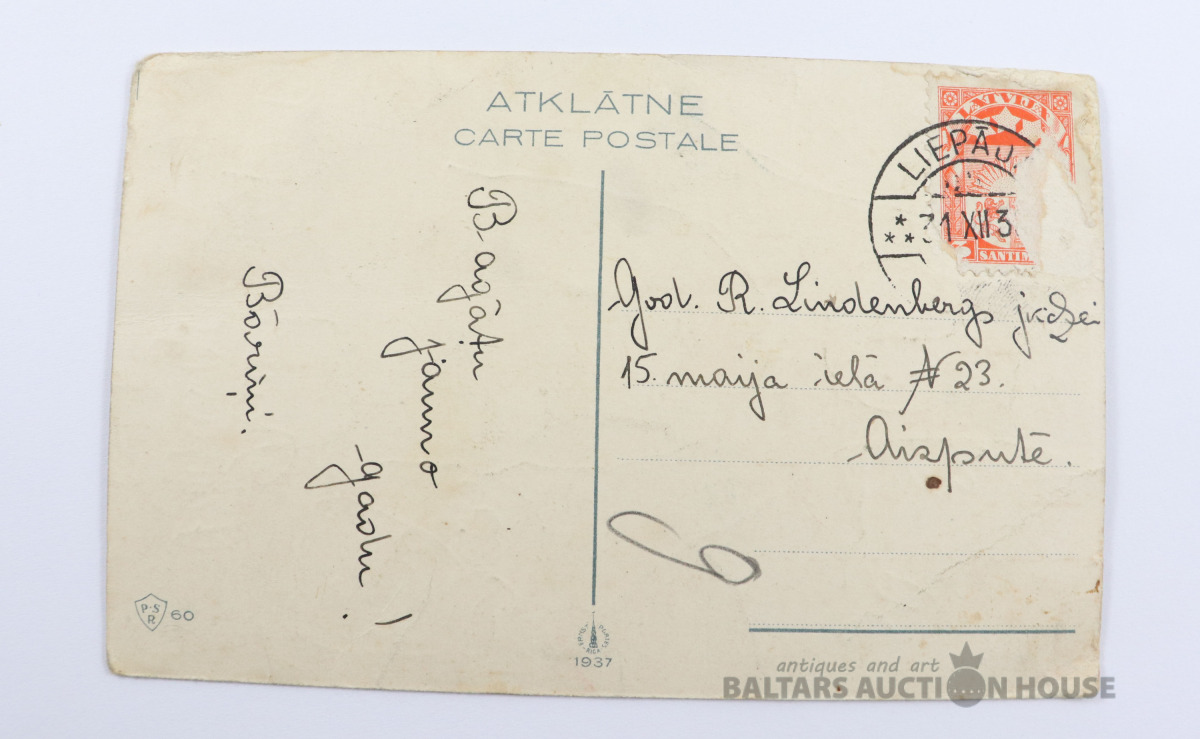 ATKLĀTNE
CARTE POSTALE
LATVIJA
LIEPĀJ
31 XII 3
SANTIM
Bagātu
jauno
gadu!
Bāriņi.
God. R. Lindenbergs jkdzei
15. maija ielā № 23.
Aizputē.
9
P-S
R.
60
RIGA
1937
antiques and art
BALTARS AUCTION HOUSE